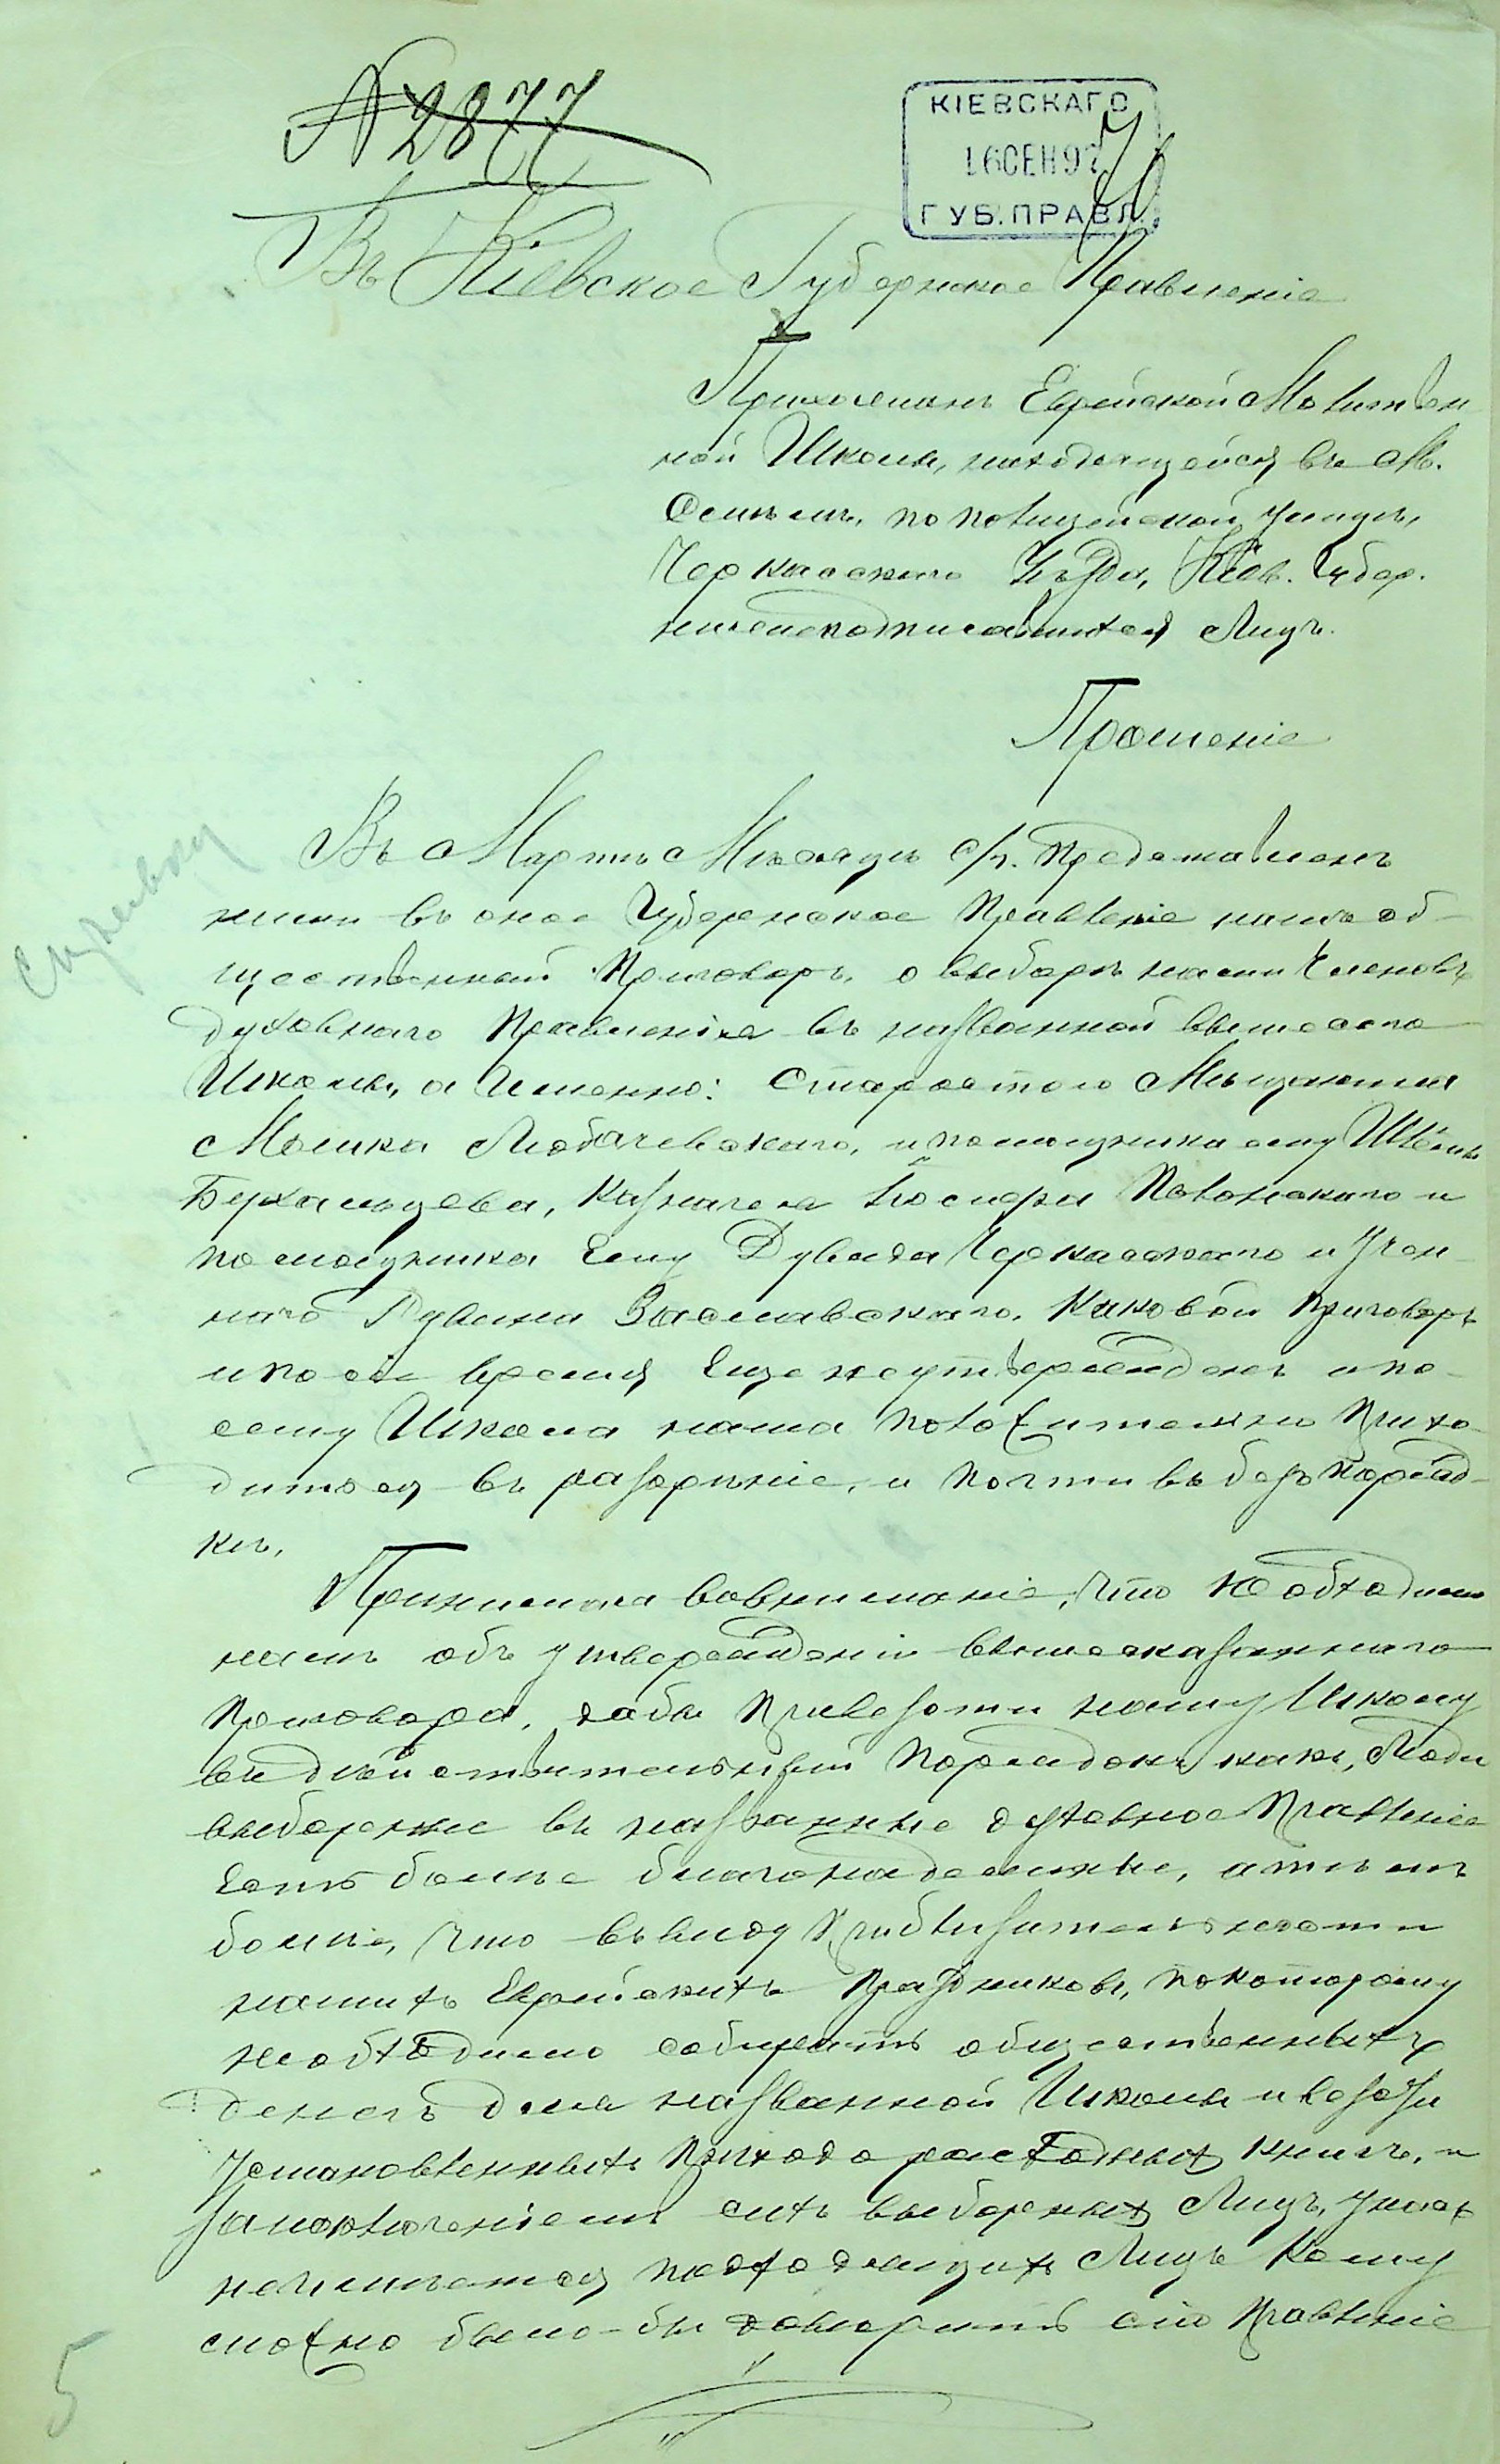 № 2877
КІЕВСКАГО
16 СЕН 97
ГУБ. ПРАВЛ.
Въ Кіевское Губернское Правленіе
Прихожанъ Еврейской Молитвен
ной Школы, находящейся въ М.
по полицейской улицѣ,
Черкасскаго Уѣзда, Кіев. Губер.
нижеподписавшихся Лицъ.
Прошеніе
Справку
Въ Мартѣ Мѣсяцѣ с/г. Представленъ
нами въ оное Губернское Правленіе нашъ об-
щественный Приговоръ, о выборѣ нами Членовъ
духовнаго Правленія въ названной выше сего
Школы, а Именно: Старостою Мѣщанина
Мошка Любачевскаго, и помощника ему
Бухальцева, Казначея Іосифа Полонскаго и
помощника Ему Дувида Черкасскаго и Учен-
наго Рувина Заславскаго. Каковой Приговоръ
и по сіе время Еще неутвержденъ и по-
сему Школа наша положительно Прихо-
дится въ разореніе, и почти въ безпоряд-
кѣ,
Принимая вовниманіе, что Необходимо
намъ объ утвержденіи вышесказаннаго
Приговора, дабы Привезти нашу Школу
въ дѣйствительный порядокъ какъ, Люди
выборенные въ названные духовное Правленіе
Есть болѣе благонадежные, а тѣмъ
болѣе, что въ виду Приблизительности
нашихъ Еврейскихъ Праздниковъ, покоторому
необходимо собирать общественныхъ
денегъ для названной Школы и везти
Установленныхъ Приходо расходныхъ книгъ, и
заисключеніемъ сихъ выборныхъ Лицъ, у насъ
неимѣется подходящихъ Лицъ Кому
можно было-бы довѣрить сію Правленіе
5